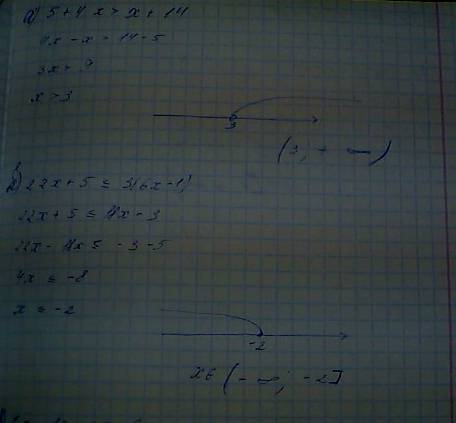 а) 5 + 4x > x + 14
4x - x > 14 - 5
3x > 9
x > 3
3
(3; + ∞)
22x + 5 ≤ 3(6x - 1)
22x + 5 ≤ 18x - 3
22x - 18x ≤ -3 - 5
4x ≤ -8
x ≤ -2
-2
x ∈ (- ∞; -2]